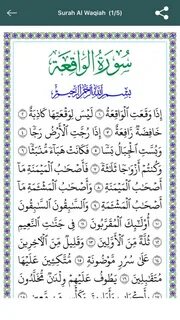 Surah Al Waqiah (1/5)
سُورَةُ الْوَاقِعَةِ
بِسْمِ اللّٰهِ الرَّحْمٰنِ الرَّحِيْمِ
إِذَا وَقَعَتِ الْوَاقِعَةُ ۝١ لَيْسَ لِوَقْعَتِهَا كَاذِبَةٌ ۝٢
خَافِضَةٌ رَّافِعَةٌ ۝٣ إِذَا رُجَّتِ الْأَرْضُ رَجًّا ۝٤
وَبُسَّتِ الْجِبَالُ بَسًّا ۝٥ فَكَانَتْ هَبَاءً مُّنْبَثًّا ۝٦
وَكُنْتُمْ أَزْوَاجًا ثَلَاثَةً ۝٧ فَأَصْحَابُ الْمَيْمَنَةِ مَا
أَصْحَابُ الْمَيْمَنَةِ ۝٨ وَأَصْحَابُ الْمَشْئَمَةِ مَا
أَصْحَابُ الْمَشْئَمَةِ ۝٩ وَالسَّابِقُونَ السَّابِقُونَ ۝١٠
أُولَٰئِكَ الْمُقَرَّبُونَ ۝١١ فِي جَنَّاتِ النَّعِيمِ ۝١٢
ثُلَّةٌ مِّنَ الْأَوَّلِينَ ۝١٣ وَقَلِيلٌ مِّنَ الْآخِرِينَ ۝١٤
عَلَىٰ سُرُرٍ مَّوْضُونَةٍ ۝١٥ مُّتَّكِئِينَ عَلَيْهَا
مُتَقَابِلِينَ ۝١٦ يَطُوفُ عَلَيْهِمْ وِلْدَانٌ مُّخَلَّدُونَ ۝١٧